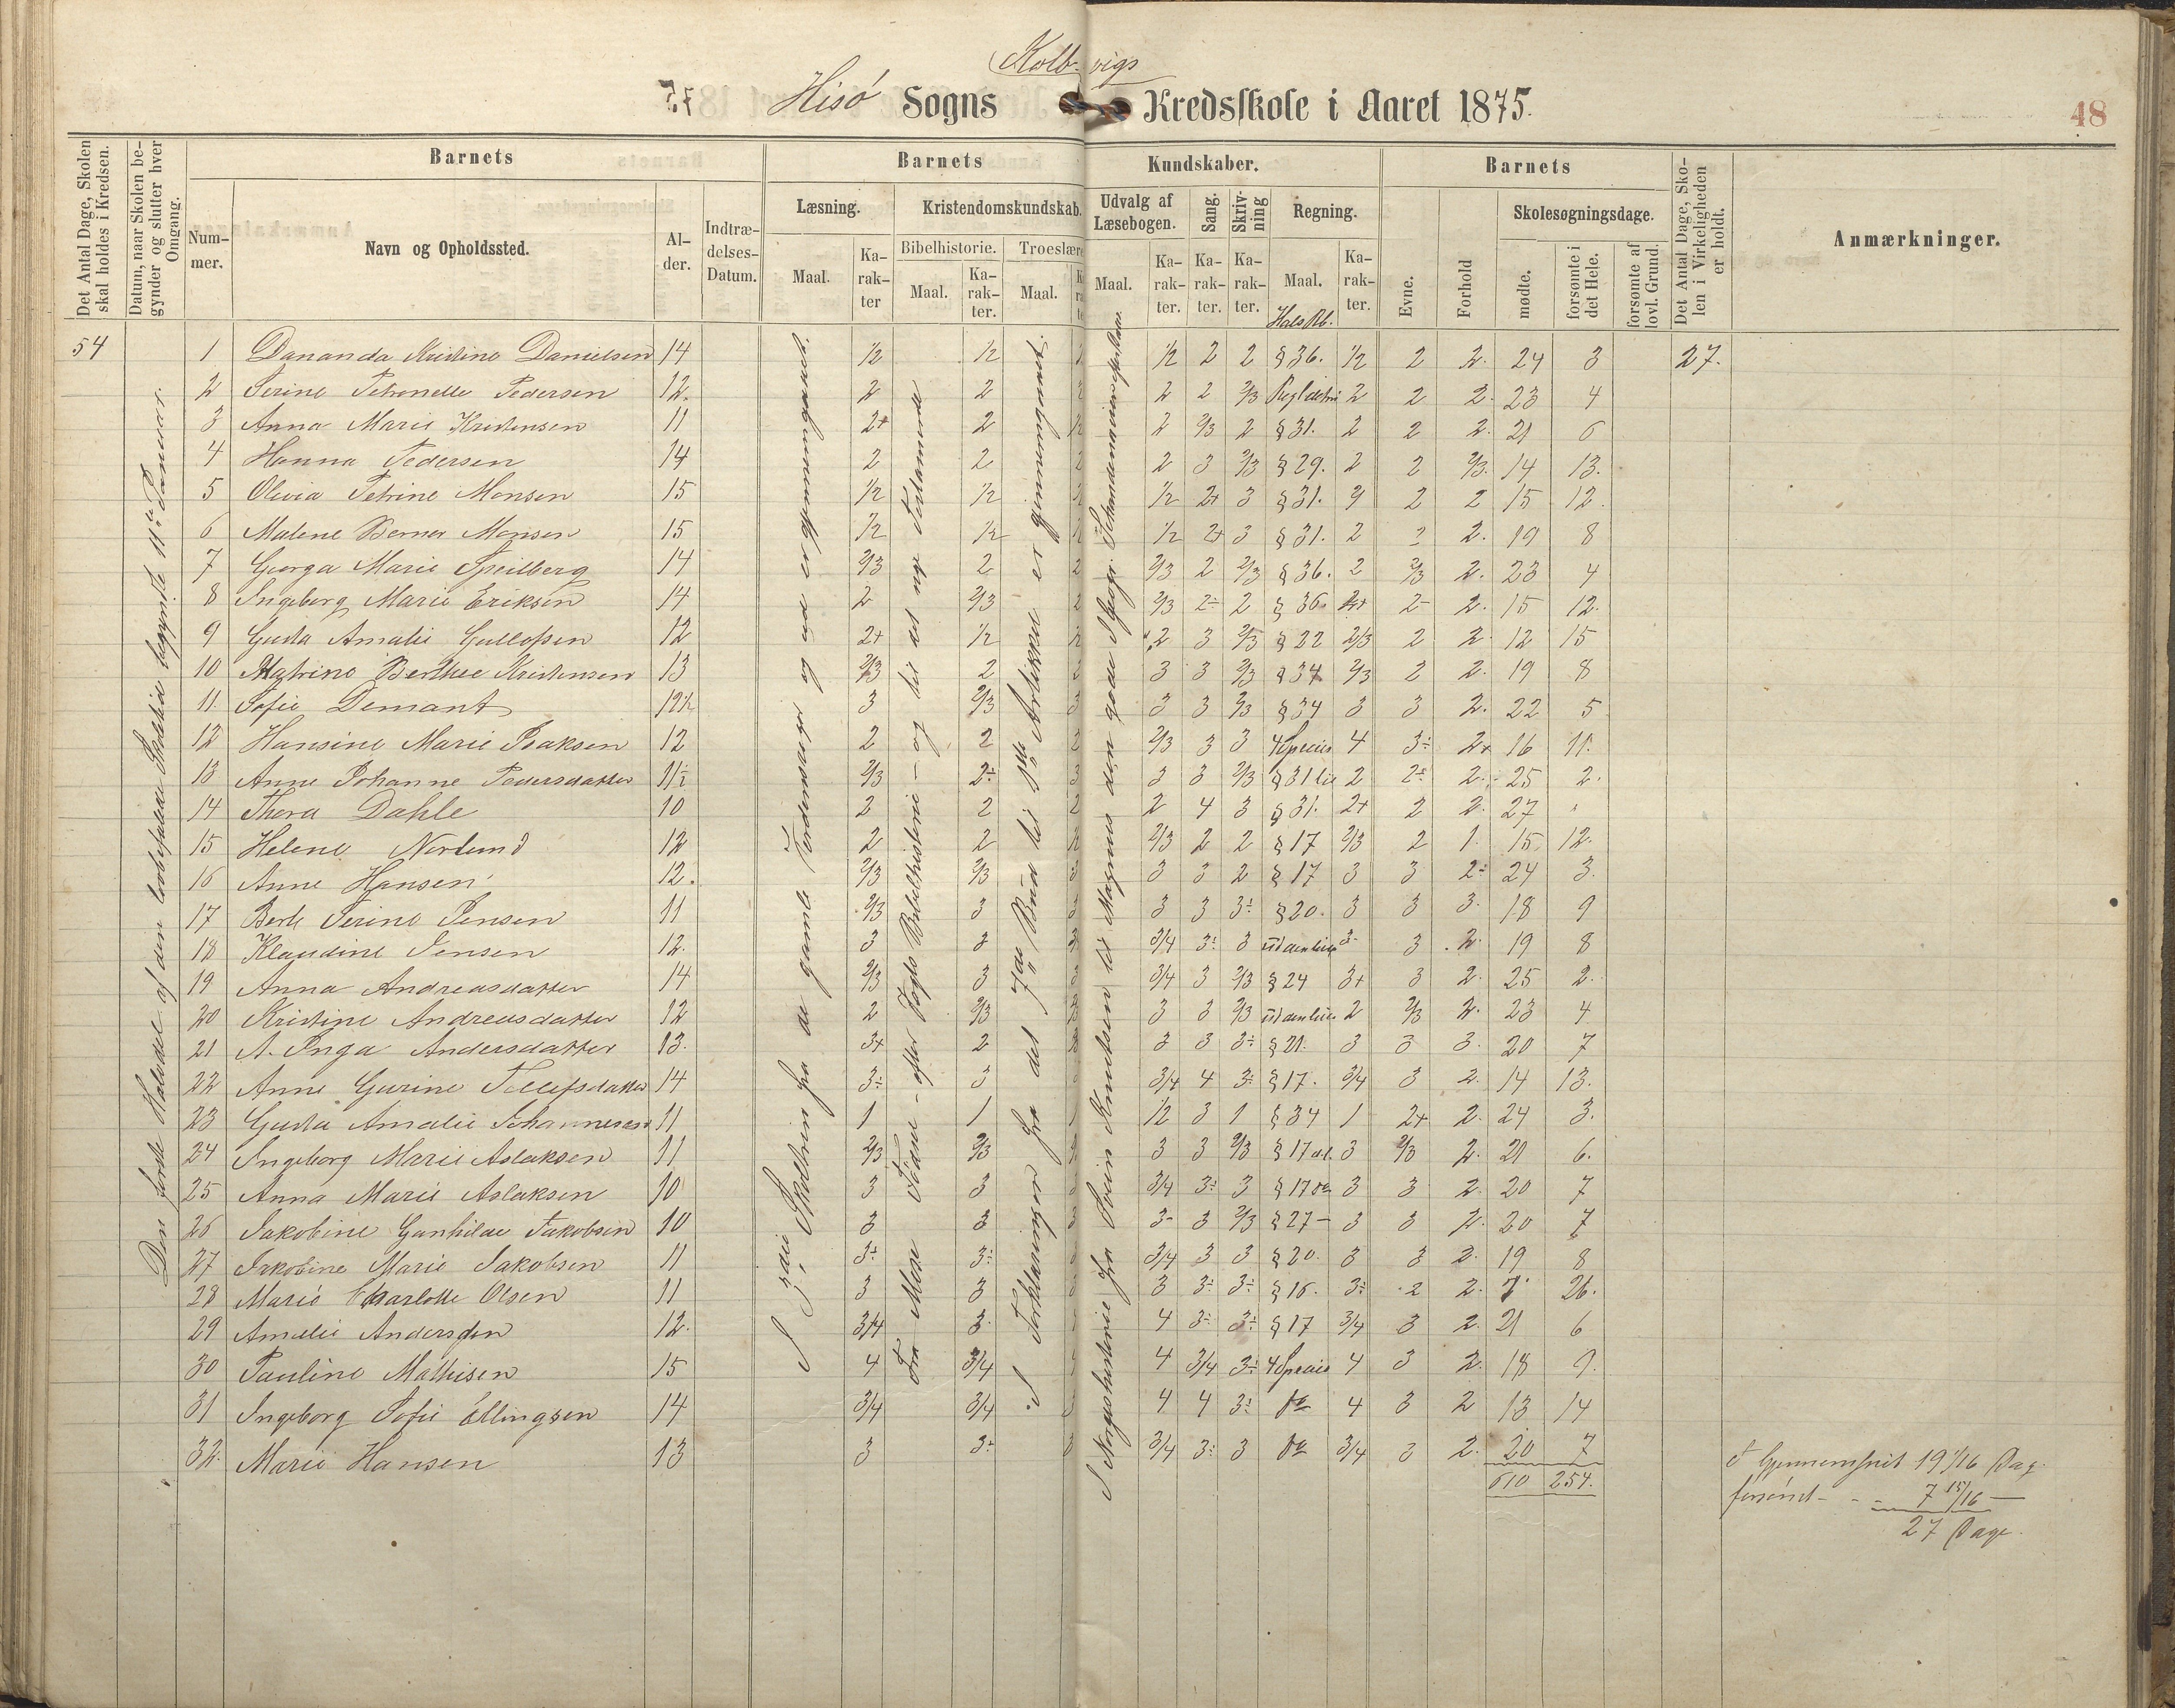 Kolb- vigs
75 Hisø Sogns Kredsskole i Aaret 1875.
48
Det Antal Dage, Skolen skal holdes i Kredsen.
Datum, naar Skolen begynder og slutter hver Omgang.
Barnets
Num-mer.
Navn og Opholdssted.
Al-der.
Indtræ-delses-Datum.
Barnets Kundskaber.
Læsning.
Maal.
Ka-rak-ter
Kristendomskundskab.
Bibelhistorie.
Maal.
Ka-rak-ter.
Troeslære
Maal.
Udvalg af Læsebogen.
Maal.
Ka-rak-ter.
Sang.
Ka-rak-ter.
Skriv-ning
Ka-rak-ter.
Regning.
Maal.
Ka-rak-ter.
Barnets
Evne.
Forhold
Skolesøgningsdage.
mødte.
forsømte i det Hele.
forsømte af lovl. Grund.
Det Antal Dage, Sko-len i Virkeligheden er holdt.
Anmærkninger.
Hals Rb.
54 1 Dananda Kristine Danielsen 14 1/2 1/2 1/2 2 2 § 36. 1/2 2 2. 24 3 27.
2 Serine Petronelle Pedersen 12. 2 2 2 2 2/3 2 2 2. 23 4
3 Anna Marie Kristensen 11 2+ 2 2 2/3 2 § 31. 2 2 2. 21 6
4 Hanna Pedersen 14 2 2 2 3 2/3 § 29. 2 2 2/3. 14 13.
5 Olivia Petrine Monsen 15 1/2 1/2 1/2 2+ 3 § 31. 2 2 2 15 12.
6 Malene Berner Monsen 15 1/2 1/2 1/2 2+ 3 § 31. 2 2 2. 19 8
7 Georga Marie Speilberg 14 2/3 2 2/3 2 2/3 § 36. 2 2/3 2. 23 4
8 Ingeborg Marie Eriksen 14 2 2/3 2/3 2÷ 2 § 36. 2+ 2- 2. 15 12.
9 Gusta Amalie Gullofsen 12 2+ 1/2 2 3 2/3 § 22 2/3 2 2 12 15
10 Katrine Berthee Kristensen 13 2/3 2 3 3 2/3 § 34 2/3 2 2. 19 8
11. Sofie Demant 12½ 3 2/3 3 3 2/3 § 34 3 3 2. 22 5
12 Hansine Marie Isaksen 12 2 2 2/3 3 3 4 Species 4 3÷ 2+ 16 11.
13 Anne Johanne Pedersdatter 11½ 2/3 2÷ 3 3 2/3 § 31 2 2÷ 2. 25 2.
14 Thora Dahle 10 2 2 2 4 3 § 31. 2+ 2 2. 27
15 Helene Norlund 12 2 2 2/3 2 2 § 17 2/3 2 1. 15 12.
16 Anne Hansen 12. 2/3 2/3 3 3 2 § 17 3 3 2÷ 24 3.
17 Berte Serine Jensen 11 2/3 3 3 3 3÷ § 20. 3 3 3. 18 9
18 Klaudine Jensen 12. 3 3 3/4 3÷ 3 3÷ 3 2. 19 8
19 Anna Andreasdatter 14 2/3 3 3/4 3 2/3 § 24 3+ 3 2. 25 2.
20 Kristine Andreasdatter 12 2 2/3 3 3 2/3 2 2/3 2. 23 4
21 A. Inga Andersdatter 13. 3+ 2 3 3 3÷ § 21. 3 3 3. 20 7
22 Anne Gurine Tellefsdatter 14 3÷ 3 3/4 4 3÷ § 17. 3/4 3 2. 14 13.
23 Gusta Amalie Johannesen 11 1 1 1/2 3 1 § 34 1 2+ 2. 24 3.
24 Ingeborg Marie Aslaksen 11 2/3 2/3 3 3 2/3 § 17 3 2/3 2. 21 6.
25 Anna Marie Aslaksen 10 3 3 3/4 3÷ 3 § 17 3 3 2. 20 7
26 Jakobine Gunhilde Jakobsen 10 3 3 3- 3 2/3 § 27 - 3 3 2. 20 7
27 Jakobine Marie Jakobsen 11 3÷ 3÷ 3/4 3 3 § 20. 3 3 2. 19 8
28 Marie Charlotte Olsen 11 3 3 3 3÷ 3÷ § 16. 3÷ 2 2. 1 26.
29 Amalie Andersen 12. 3/4 3. 4 3÷ 3÷ § 17 3/4 3 2. 21 6
30 Pauline Mathisen 15 4 3/4 4 3/4 3÷ 4 Species 4 3 2. 18 9.
31 Ingeborg Sofie Ellingsen 14 3/4 3/4 4 4 3÷ do 4 3 2 13 14
32. Marie Hansen 13 3 3÷ 3/4 3÷ 3 do 3/4 3 2. 20 7
610 254.
Den første Halvdel af den lovbefalede Skoletid begyndte 11te Januar.
I 3die Skoletrin fra de gamle Nordens Sagaer og ud er gjennemgaaet.
Fra Mose Døde - efter Vogts Bibelhistorie - og til det nye Testamente
I Forklaringen fra det 7de Bud til 1ste Artikkel er gjennemgaaet.
I Norgeshistorie fra Svein Knutsen til Magnus den gode I Geogr. Skandinaviens
I Gjennemsnit 19 1/16 Dag.
forsømt - - - 7 15/16 -
27 Dage.